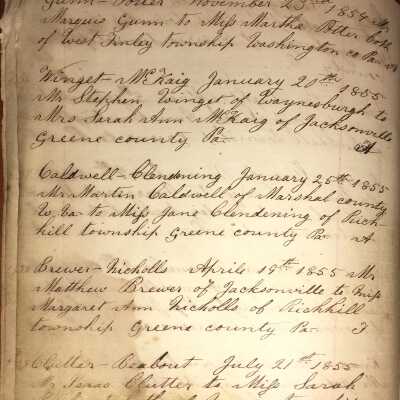 Gunn – Potter November 23rd 1854 Mr
Marquis Gunn to Miss Martha Potter both
of West Finley township Washington co Pa
Winget – McKaig January 20th 1855
Mr Stephen Winget of Waynesburgh to
Mrs Sarah Ann McKaig of Jacksonville
Greene county Pa A
Caldwell – Clendening January 25th 1855
Mr Martin Caldwell of Marshal county
W. Va to Miss Jane Clendening of Rich-
hill township Greene county Pa A
Brewer – Nicholls April 19th 1855 Mr
Matthew Brewer of Jacksonville to Miss
Margaret Ann Nicholls of Richhill
township Greene county Pa
Clutter – Beabout July 21th 1855
Mr Isaac Clutter to Miss Sarah